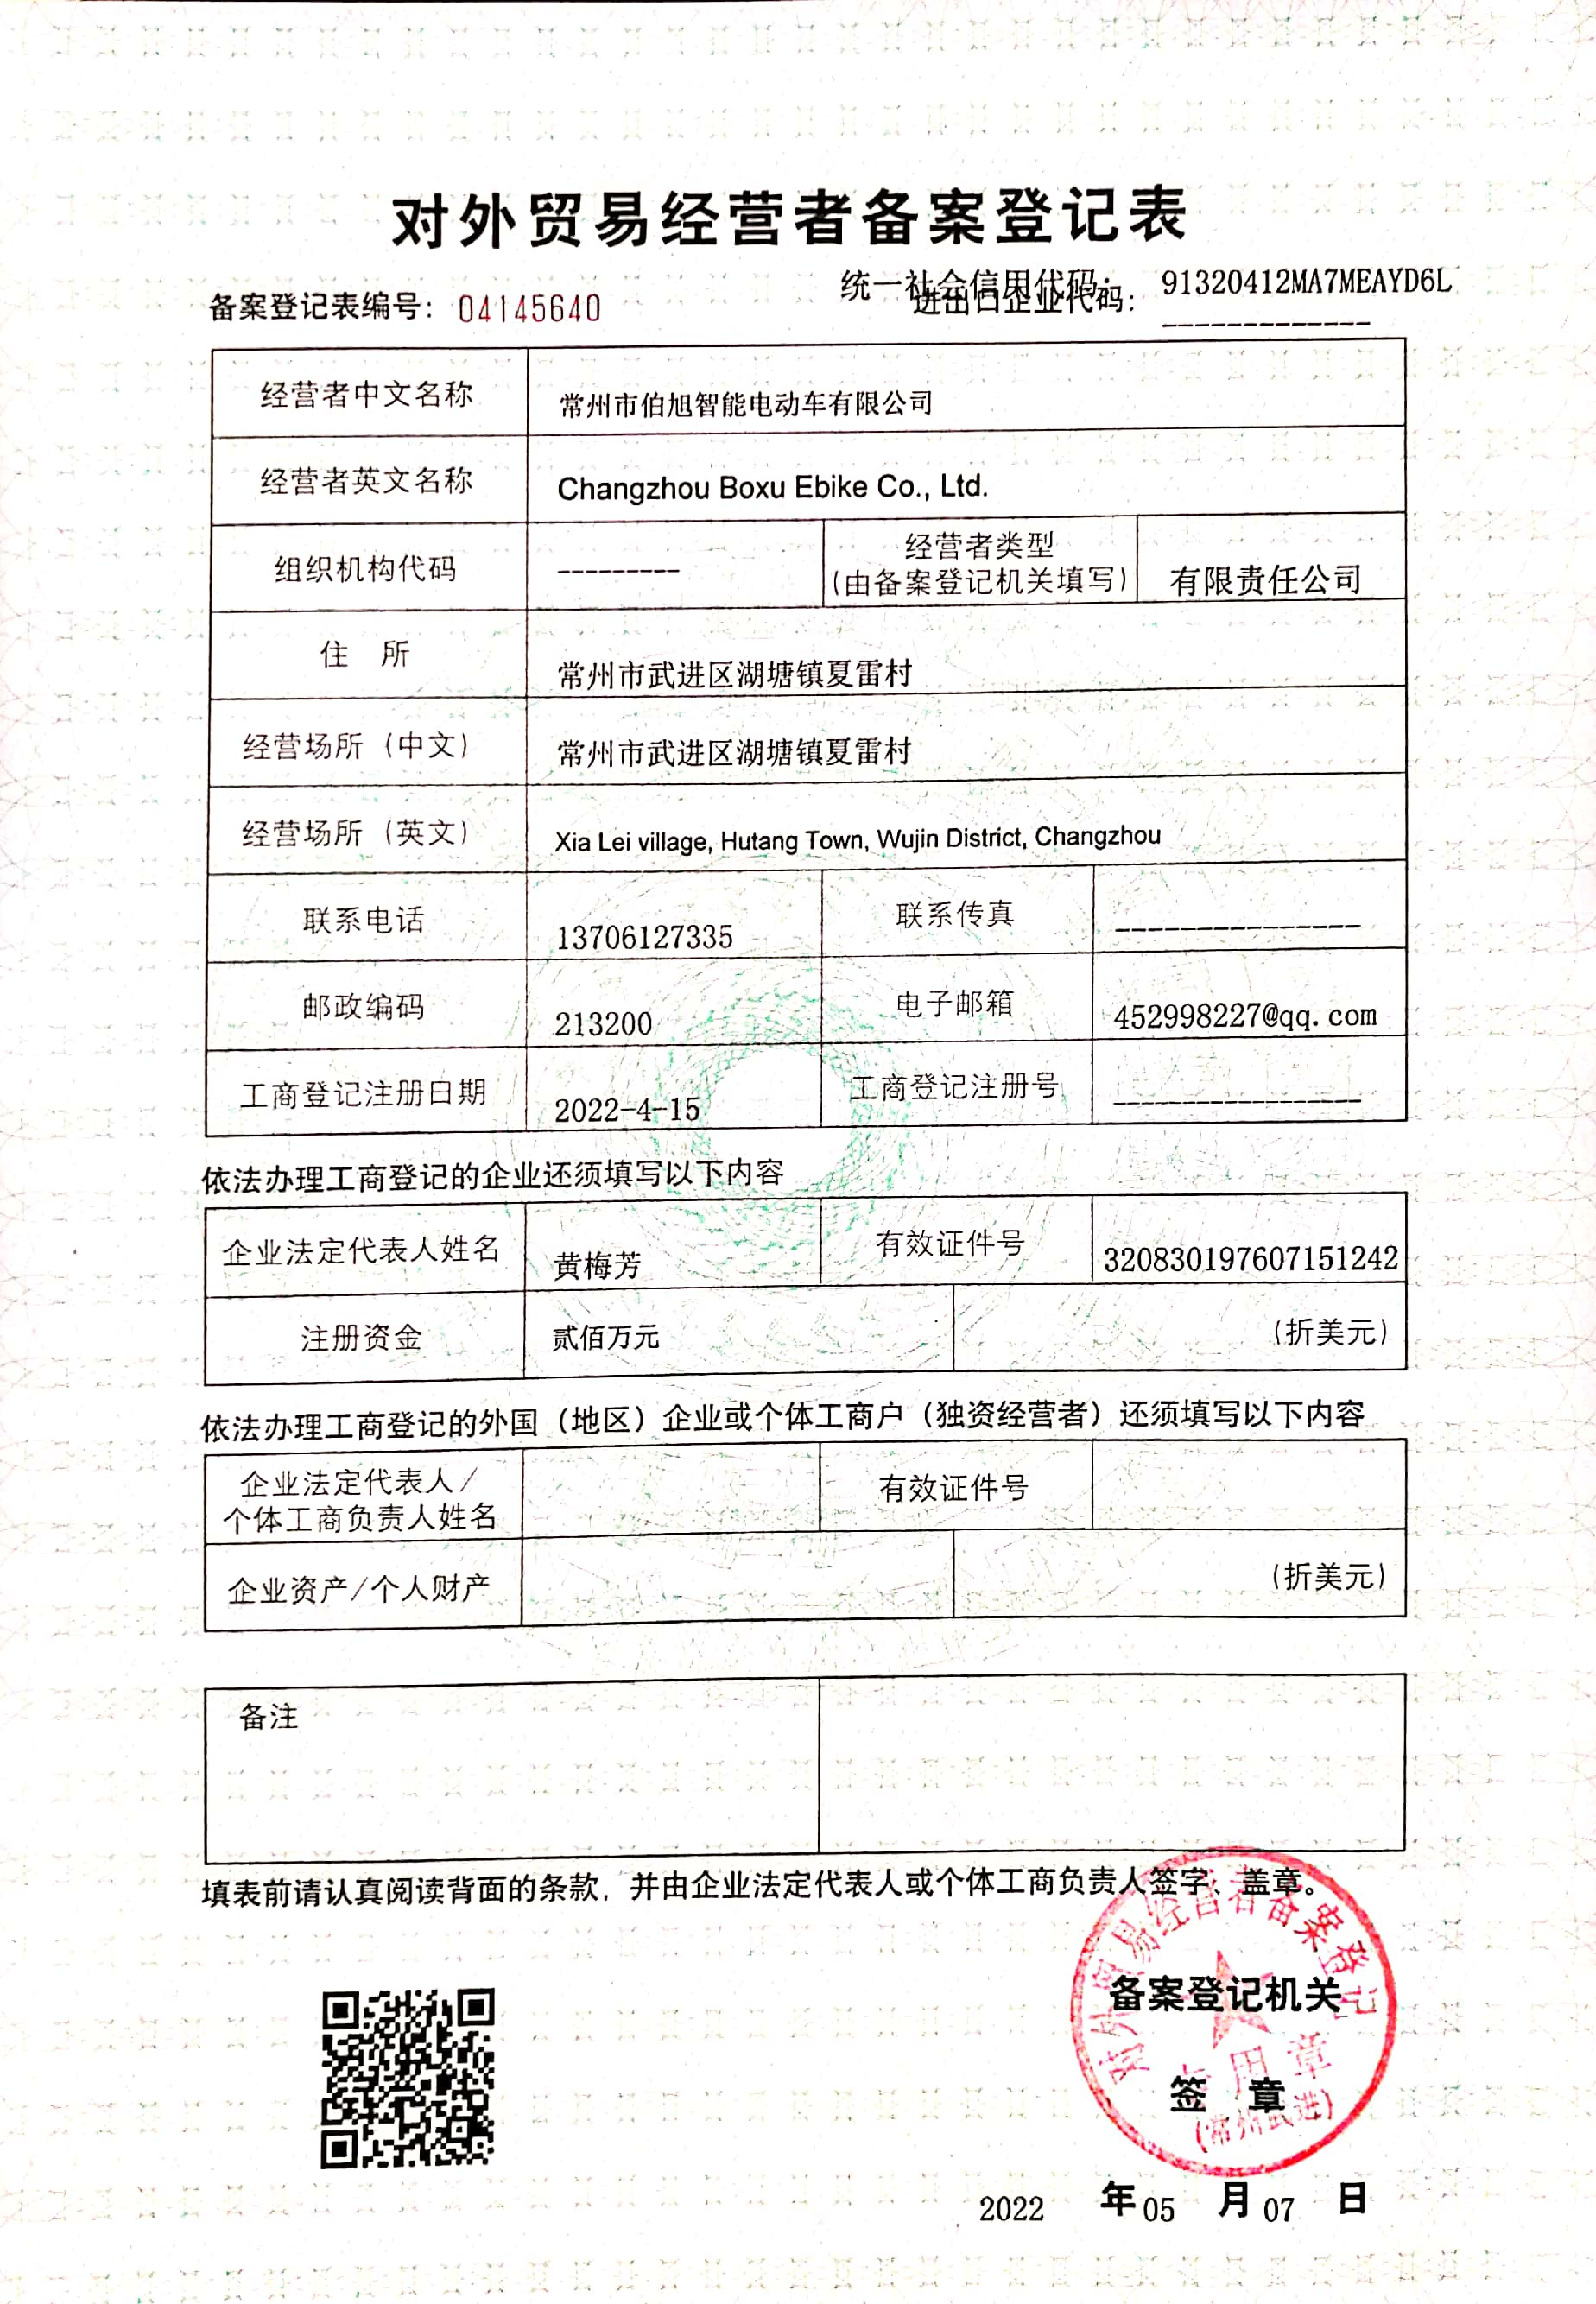 对外贸易经营者备案登记表
统一社会信用代码： 91320412MA7MEAYD6L
备案登记表编号：04145640 进出口企业代码：-------------
经营者中文名称 常州市伯旭智能电动车有限公司
经营者英文名称 Changzhou Boxu Ebike Co., Ltd.
组织机构代码 --------- 经营者类型 (由备案登记机关填写) 有限责任公司
住 所 常州市武进区湖塘镇夏雷村
经营场所（中文） 常州市武进区湖塘镇夏雷村
经营场所（英文） Xia Lei village, Hutang Town, Wujin District, Changzhou
联系电话 13706127335 联系传真 ---------------
邮政编码 213200 电子邮箱 452998227@qq.com
工商登记注册日期 2022-4-15 工商登记注册号 ---------------
依法办理工商登记的企业还须填写以下内容
企业法定代表人姓名 黄梅芳 有效证件号 320830197607151242
注册资金 贰佰万元 (折美元)
依法办理工商登记的外国（地区）企业或个体工商户（独资经营者）还须填写以下内容
企业法定代表人/
个体工商负责人姓名 有效证件号
企业资产/个人财产 (折美元)
备注
填表前请认真阅读背面的条款，并由企业法定代表人或个体工商负责人签字、盖章。
对外贸易经营者备案登记
备案登记机关
专用章
签 章
(常州武进)
2022 年 05 月 07 日